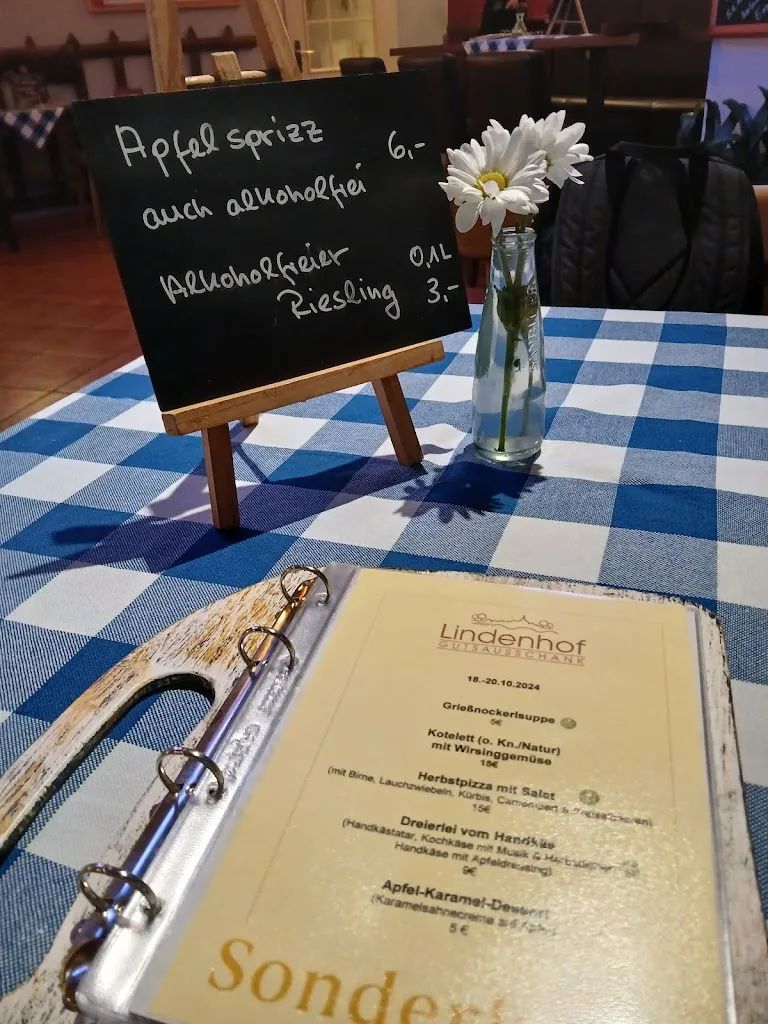 Apfelsprizz 6,-
auch alkoholfrei
Alkoholfreier 0,1L
Riesling 3,-
Lindenhof
GUTSAUSSCHANK
18.-20.10.2024
Grießnockerlsuppe
5€
Kotelett (o. Kn./Natur)
mit Wirsinggemüse
15€
Herbstpizza mit Salat
(mit Birne, Lauchzwiebeln, Kürbis, Camembert & Preiselbeeren)
15€
Dreierlei vom Handkäs
(Handkästatar, Kochkäse mit Musik &
Handkäse mit Apfeldressing)
9€
Apfel-Karamel-Dessert
(Karamelsahnecreme
5 €